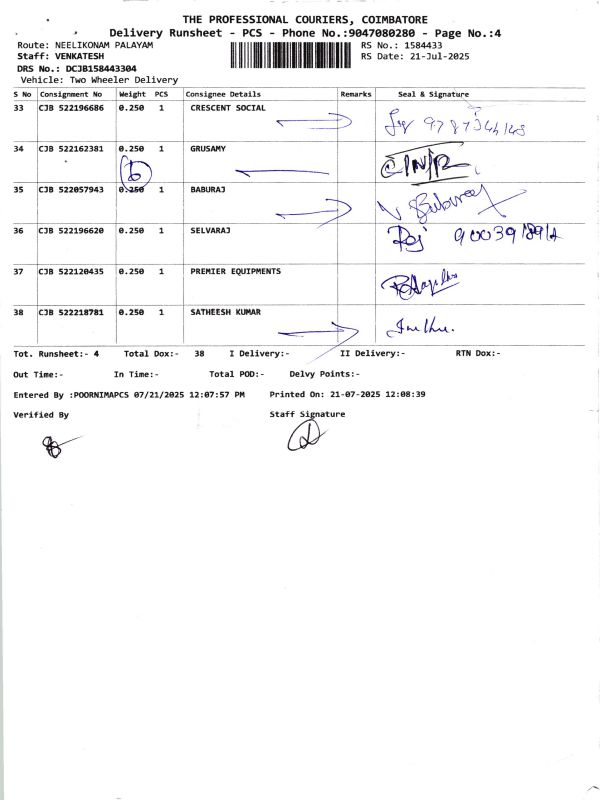 THE PROFESSIONAL COURIERS, COIMBATORE
Delivery Runsheet - PCS - Phone No.:9047080280 - Page No.:4
Route: NEELIKONAM PALAYAM RS No.: 1584433
Staff: VENKATESH RS Date: 21-Jul-2025
DRS No.: DCJB158443304
Vehicle: Two Wheeler Delivery
S No Consignment No Weight PCS Consignee Details Remarks Seal & Signature
33 CJB 522196686 0.250 1 CRESCENT SOCIAL
34 CJB 522162381 0.250 1 GRUSAMY
35 CJB 522057943 0.250 1 BABURAJ
36 CJB 522196620 0.250 1 SELVARAJ
37 CJB 522120435 0.250 1 PREMIER EQUIPMENTS
38 CJB 522218781 0.250 1 SATHEESH KUMAR
Tot. Runsheet:- 4 Total Dox:- 38 I Delivery:- II Delivery:- RTN Dox:-
Out Time:- In Time:- Total POD:- Delvy Points:-
Entered By :POORNIMAPCS 07/21/2025 12:07:57 PM Printed On: 21-07-2025 12:08:39
Verified By Staff Signature